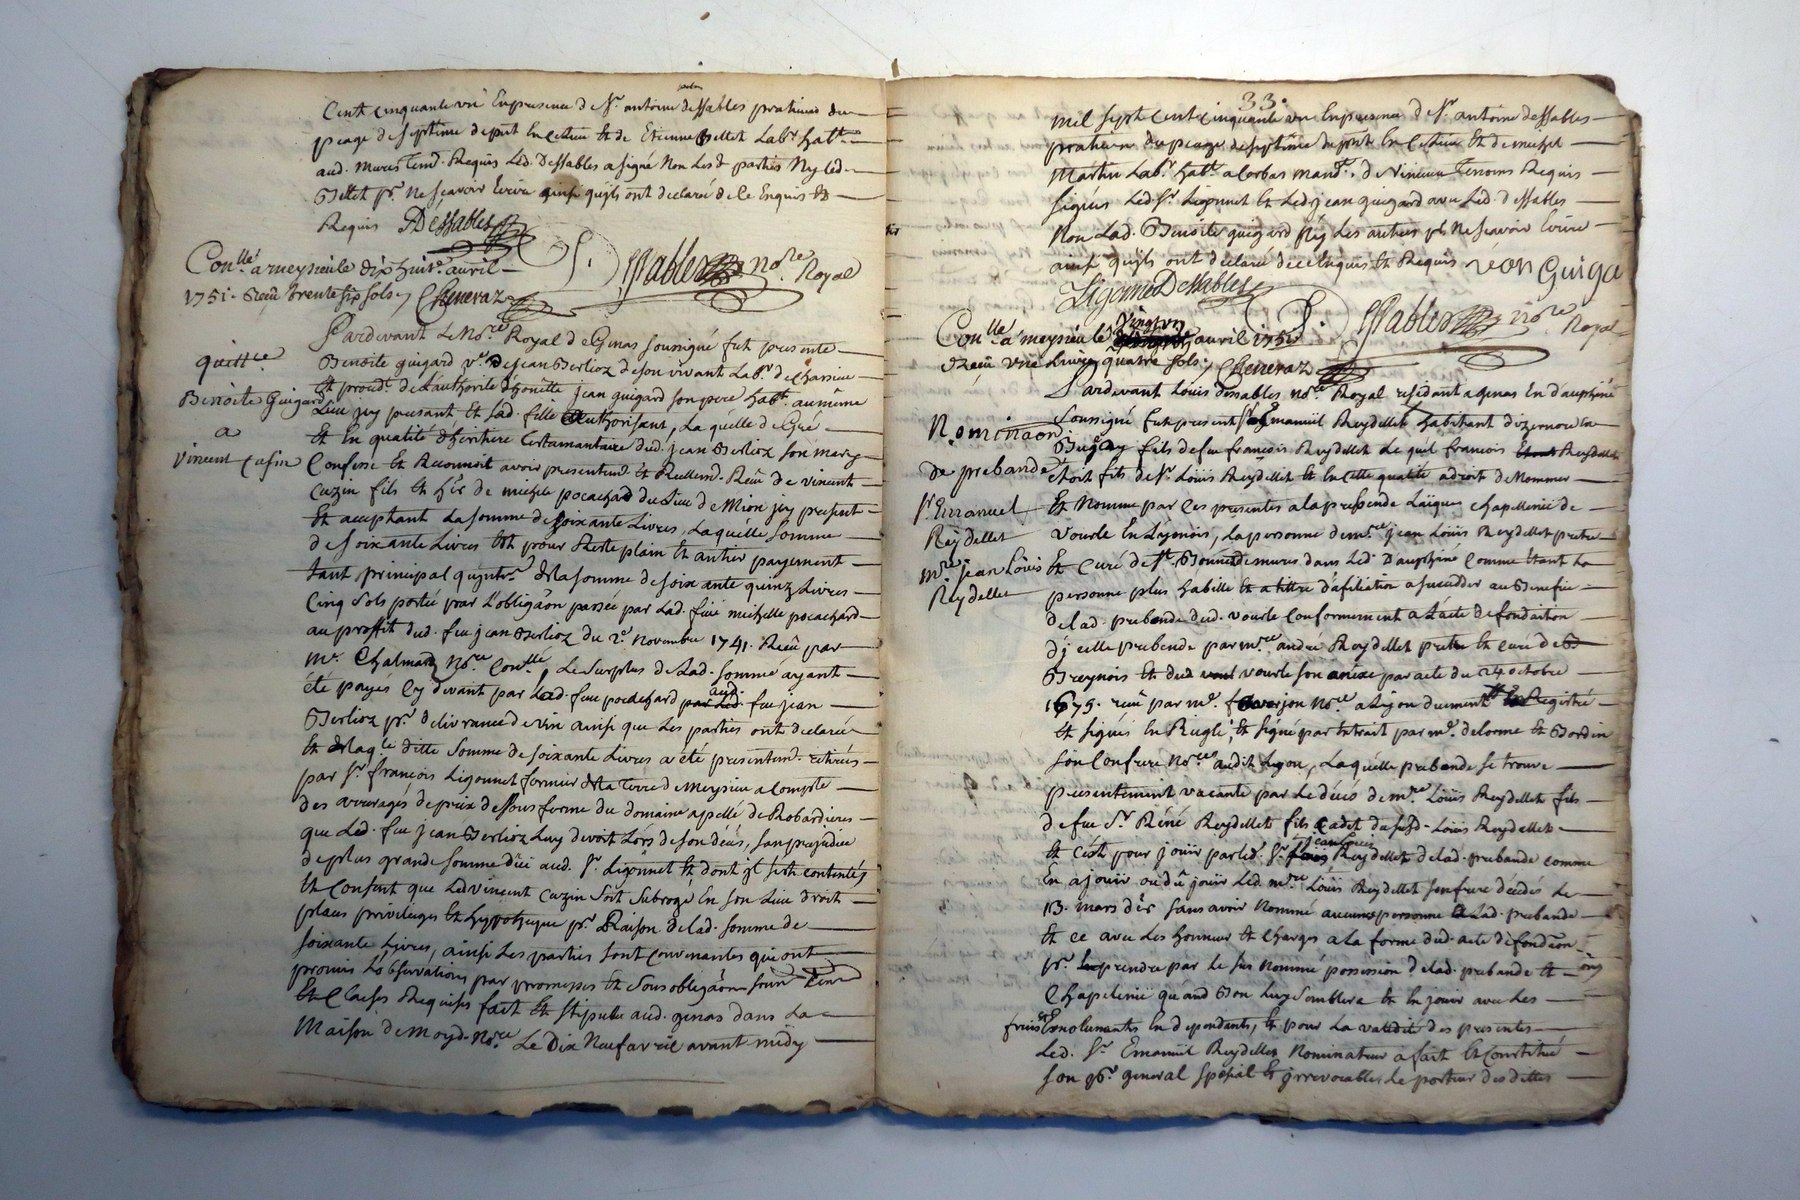 Cent cinquante un En presence de Sr. antoine dessables praticien du
peage de septeme depnt En ce lieu Et de Etienne Pellet Labr. habt.
aud. mures temd. Requis Led. Dessables a signé Non Lesd parties Ny led.
Pellet pr. ne scavoir Ecrire ainsi quils ont declaré de ce Enquis Et
Requis Dessables
Conllé a meysieu le dix huit. avril
1751. Reçu trente six sols
Dessables nore. Royal
Pardevant Le Nore. Royal de Genas soussigné fut presente
quittce
Benoite guigard ve. de jean Berlioz de son vivant Labr. de Chassieu
Benoite Guigard
a
vincent Cusin
Et proced. de L'authorité d'honete jean guigard son pere habt. au meme
Lieu jcy presant Et sad. fille Authorisant, La quelle de Gré
Et En qualité d'heritiere testamantaire dud. jean Berlioz son mary
Confesse Et Reconnoit avoir presentemt. Et Reellemt. Reçu de vincent
Cuzin fils Et her. de michele pocachard du Lieu de Mion jcy present
Et acceptant La somme de soixante Livres, Laquelle somme
de soixante Livres Est pour Reste plain Et antier payement
tant principal qu'intr. de la somme de soixante quinze Livres
Cinq sols portée par L'obligaon passée par Lad. feue michelle pocachard
au proffit dud. feu jean Berlioz du 2e. novembre 1741. Reçu par
Mr. Chalmard Nore. Conllé, Le surplus de Lad. somme ayant
été payés cy devant par Lad. feue pocachard aud. feu jean
Berlioz pr. delivrance de vin ainsi que Les parties ont declaré
Et de laqle ditte somme de soixante Livres a été presentemt. retirés
par Sr. françois Ligonnet fermier de la terre de meysieu a compte
des arrerages de prix de sous ferme du domaine apellé de Robardieres
que Led. feu jean Berlioz Luy devoit Lors de son decés, sans prejudice
de plus grande somme düe aud. Sr. Ligonnet Et dont jl s'est contenté
Et Consent que Led vincent Cuzin soit subrogé En son Lieu droit
places privileges Et hypotheque pr. Raison de lad. somme de
soixante Livres, ainsi Les parties sont Convenantes qui ont
promis L'observation par promesses Et sous obligaon
Et Clauses Requises fait Et stipulé aud. genas dans La
Maison de moyd. Nore. Le Dix Neuf avril avant midy
33.
mil sept cent cinquante un En presence de Sr. antoine dessables
praticien du peage de septême depnt En ce lieu Et de michel
Martin Labr. habt. a Corbas mandt. de Temoins Requis
signés Led. Sr. Ligonnet Et Led. jean guigard avec Led. dessables
Non Lad. Benoite guigard Ny Les autres pr. Ne scavoir Ecrire
ainsi quils ont declaré de ce Enquis Et Requis
Ligonnet Dessables
Dessables nore. Royal
Conllé a meysieu le vingt un avril 1751
Reçu une Livre quatre sols.
Pardevant Louis dessables nore. Royal residant a genas En dauphiné
Nominaon
de prebande
Sr. Emanuel
Reydellet
mre. jean Louis
Reydellet
soussigné fut present Sr. Emanuel Reydellet habitant d'izernore En
Bugey fils de feu françois Reydellet Le quel francois Reydellet
étoit fils de Sr. Louis Reydellet Et En cette qualité a droit de Nommer
Et Nomme par Ces presentes a la prebende Laique Chapellenie de
Vourle En Lyonois, La personne de mre. jean Louis Reydellet pretre
Et Curé de St. Bonnet de mures dans Led. Dauphiné Comme étant La
personne plus habille Et a tittre d'afiliation a succeder au Benefice
de lad. prebende dud. vourle Conformement a L'acte de fondation
d'jcelle prebende par mre. andré Reydellet pretre Et Curé de
Breynois Et dud vourle son anexe par acte du 24 octobre
1675. reçu par me. nore a Lyon duement Registré
Et signés En Regle, Et signé par Extrait par me. delorme Et Bordin
son Confrere Nores. audit Lyon, Laquelle prebende se trouve
presentement vacante par Le décés de mre. Louis Reydellet fils
de feu Sr. Réné Reydellet fils cadet du susd. Louis Reydellet
Et C'est pour jouir par led. Sr. jean Louis Reydellet de lad. prebande comme
En a joüir ou dû joüir Led. mre. Louis Reydellet son frere decédés Le
13. mars der. sans avoir Nommé aucune personne a Lad. prebande
Et ce avec Les honneur Et Charges a la forme dud. acte de fondaon
pr. prendre par le sus nommé possession de lad. prebande Et
Chapelenie quand Bon Luy semblera Et En jouir avec Les
fruis Et Emolumants En dependants, Et pour La validité des presentes
Led. Sr. Emanuel Reydellet Nominateur a fait Et Constitué
son pr. general special Et jrrevocable Le porteur des dittes